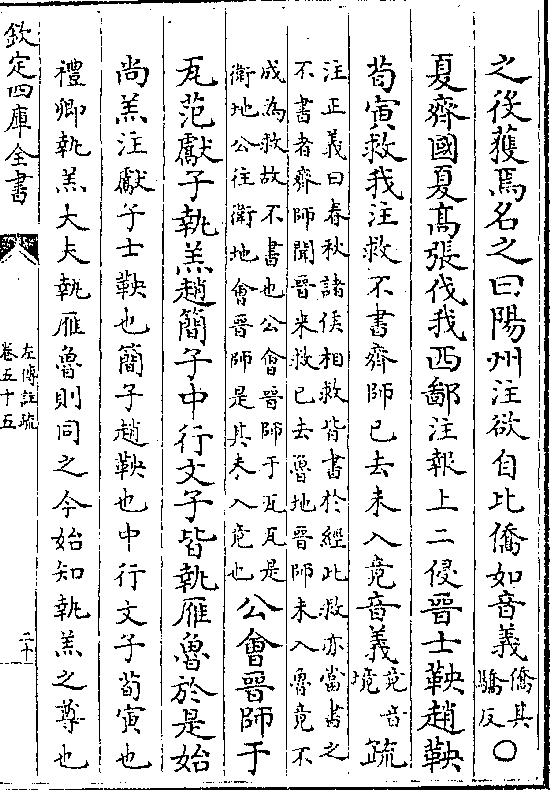 之後獲焉名之曰陽州注欲自比僑如音義僑其
驕反○
夏齊國夏髙張伐我西鄙注報上二侵晉士鞅趙鞅
荀寅救我注救不書齊師已去未入竟音義竟音
境疏
注正義曰春秋諸侯相救皆書於經此救亦當書之
不書者齊師聞晉來救已去魯地晉師未入魯竟不
成為救故不書也公會晉師于瓦瓦是
衛地公往衛地會晉師是其未入竟也
公會晉師于
瓦范獻子執羔趙簡子中行文子皆執雁魯於是始
尚羔注獻子士鞅也簡子趙鞅也中行文子荀寅也
禮卿執羔大夫執雁魯則同之今始知執羔之尊也
欽定四庫全書
左傳註疏
卷五十五
二十